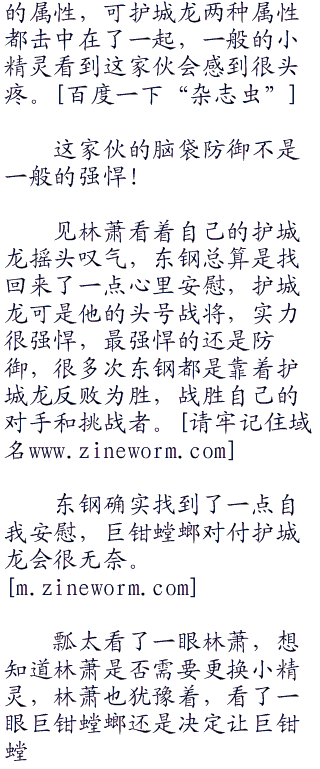 的属性，可护城龙两种属性
都击中在了一起，一般的小
精灵看到这家伙会感到很头
疼。[百度一下“杂志虫”]
这家伙的脑袋防御不是
一般的强悍！
见林萧看着自己的护城
龙摇头叹气，东钢总算是找
回来了一点心里安慰，护城
龙可是他的头号战将，实力
很强悍，最强悍的还是防
御，很多次东钢都是靠着护
城龙反败为胜，战胜自己的
对手和挑战者。[请牢记住域
名www.zineworm.com]
东钢确实找到了一点自
我安慰，巨钳螳螂对付护城
龙会很无奈。
[m.zineworm.com]
瓢太看了一眼林萧，想
知道林萧是否需要更换小精
灵，林萧也犹豫着，看了一
眼巨钳螳螂还是决定让巨钳
螳